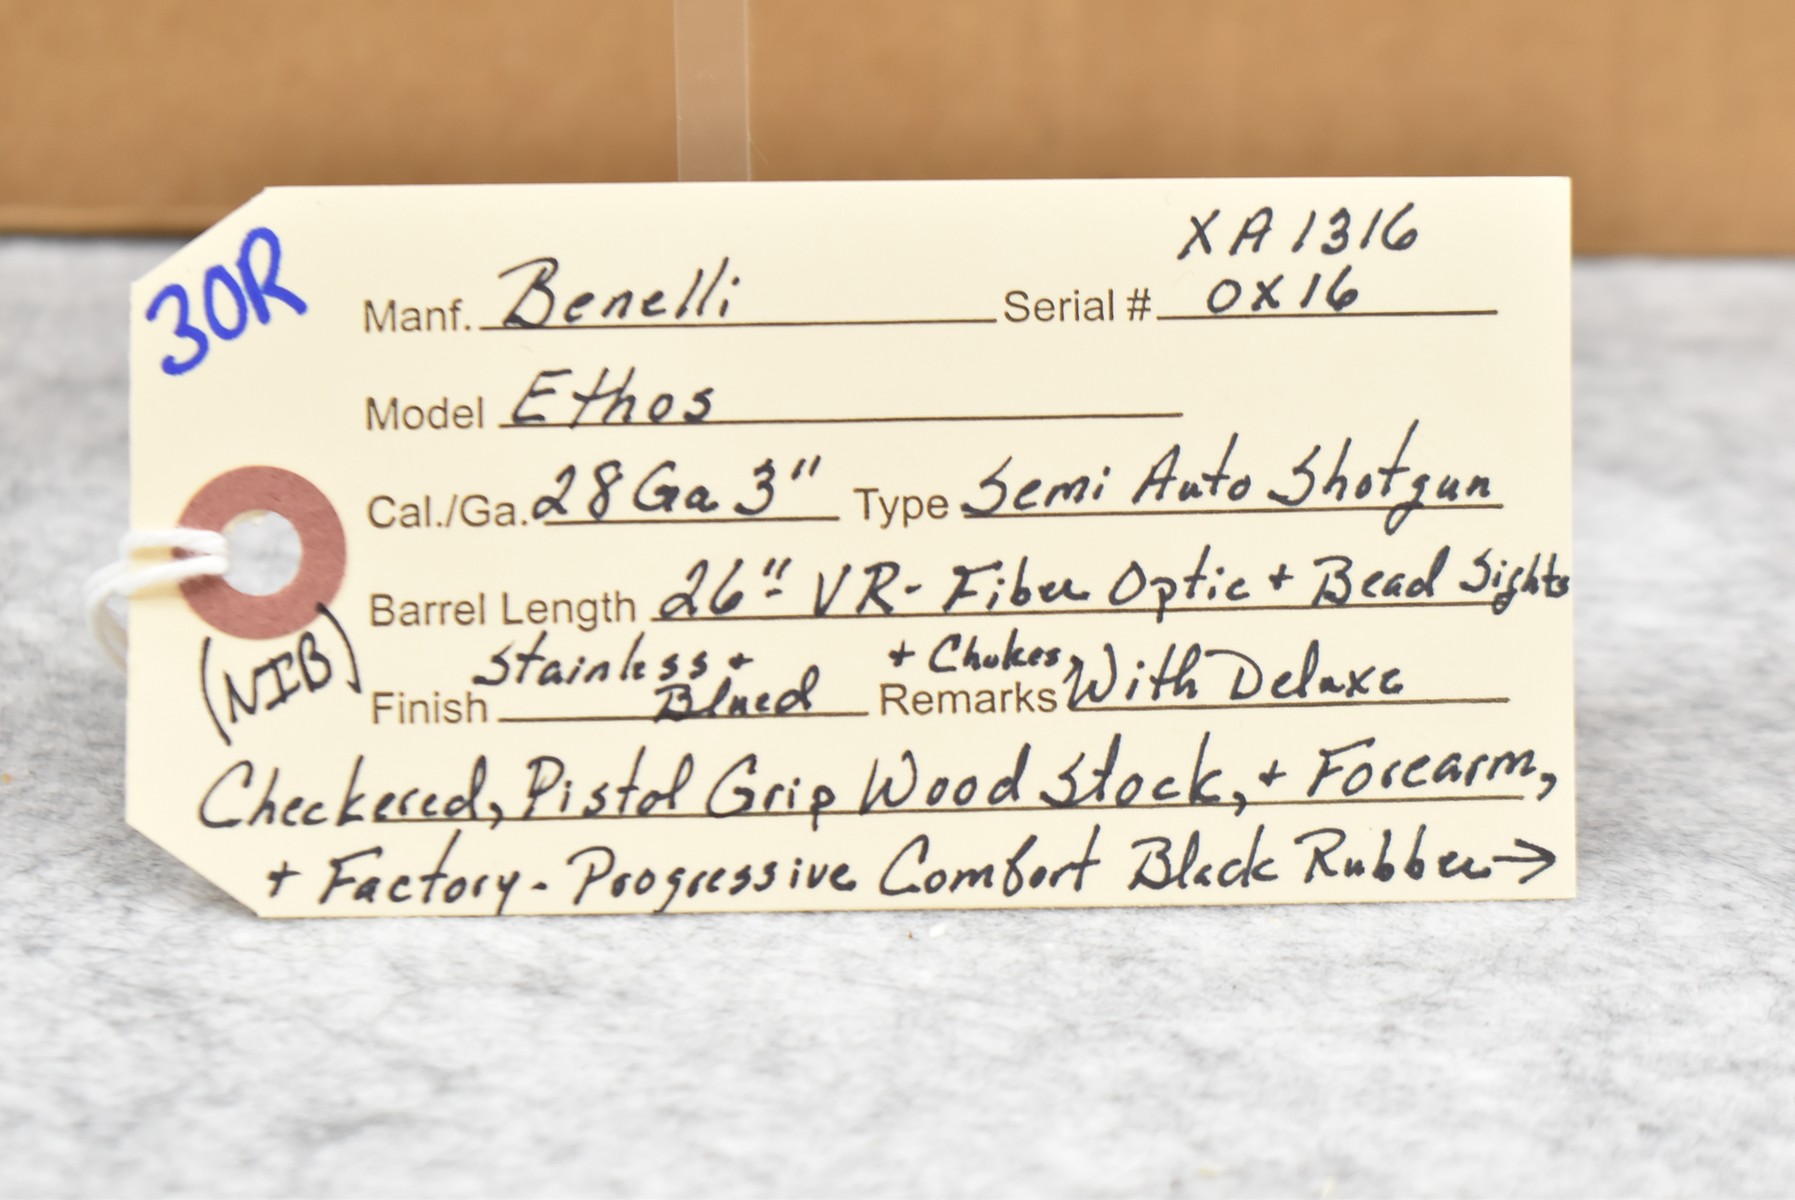 30R
XA1316
Manf. Benelli Serial # 0X16
Model Ethos
Cal./Ga. 28 Ga 3" Type Semi Auto Shotgun
Barrel Length 26" VR- Fiber Optic + Bead Sights
(NIB)
Stainless + + Chokes,
Finish Blued Remarks With Deluxe
Checkered, Pistol Grip Wood Stock, + Forearm,
+ Factory - Progressive Comfort Black Rubber →